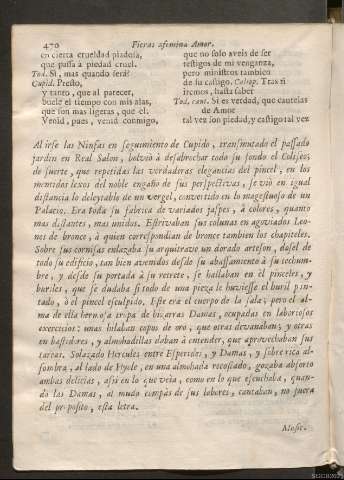 470 Fieras afemina Amor.
en cierta crueldad piadosa,
que passa à piedad cruel.
Tod. Si, mas quando serà?
Cupid. Presto,
y tanto, que al parecer,
buele el tiempo con mis alas,
que son mas ligeras, que èl.
Venid, pues, venid conmigo,
que no solo aveis de ser
testigos de mi vengança,
pero ministros tambien
de su castigo. Tras ti
iremos, hasta saber
Tod. cant. Si es verdad, que cautelas
de Amor
tal vez son piedad, y castigo tal vez
Al irse las Ninfas en seguimiento de Cupido, transmutado el passado
jardin en Real Salon, bolviò à desabrochar todo su fondo el Coliseo;
de suerte, que repetidas las verdaderas elegancias del pincel, en los
mentidos lexos del noble engaño de sus perspectivas, se viò en igual
distancia lo deleytable de un vergel, convertido en lo magestuoso de un
Palacio. Era toda su fabrica de variados jaspes, à colores, quanto
mas distantes, mas unidos. Estrivaban sus colunas en agoviados Leo-
nes de bronce, à quien correspondian de bronce tambien los chapiteles.
Sobre sus cornisas enlazaba su arquitrave un dorado arteson, dosel de
todo su edificio, tan bien avenidos desde su abassamento à su techum-
bre, y desde su portada à su retrete, se hallaban en èl pinceles, y
buriles, que se dudaba si todo de una pieza le huviesse el buril pin-
tado, ò el pincel esculpido. Este era el cuerpo de la sala; pero el al-
ma de ella hermosa tropa de bizarras Damas, ocupadas en laboriosos
exercicios: unas hilaban copos de oro, que otras devanaban; y otras
en bastidores, y almohadillas daban à entender, que aprovechaban sus
tareas. Solazado Hercules entre Esperides, y Damas, y sobre rica al-
fombra, al lado de Yyole, en una almohada recostado, gozaba absorto
ambas delicias, assi en lo que veìa, como en lo que escuchaba, quan-
do las Damas, al mudo compàs de sus labores, cantaban, no fuera
del proposito, esta letra.